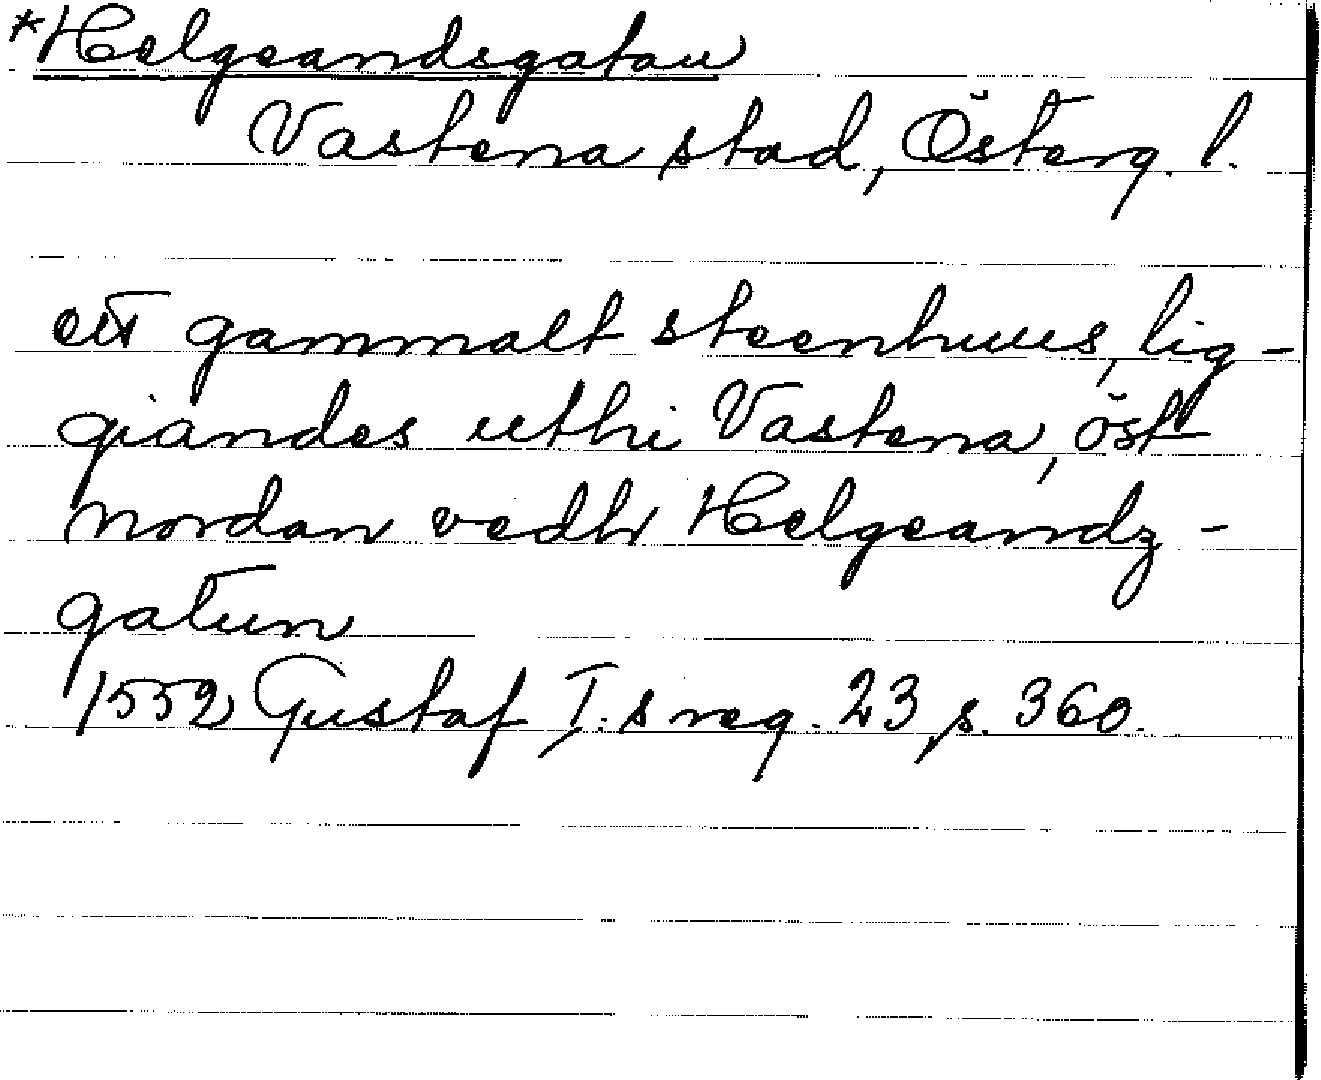 *Helgeandsgatan
Vastena stad, Österg. l.
ett gammalt steenhuus, lig-
giandes uthi Vastena, öst
nordan vedh Helgeandz-
gatun
1552 Gustaf I:s reg. 23, s. 360.